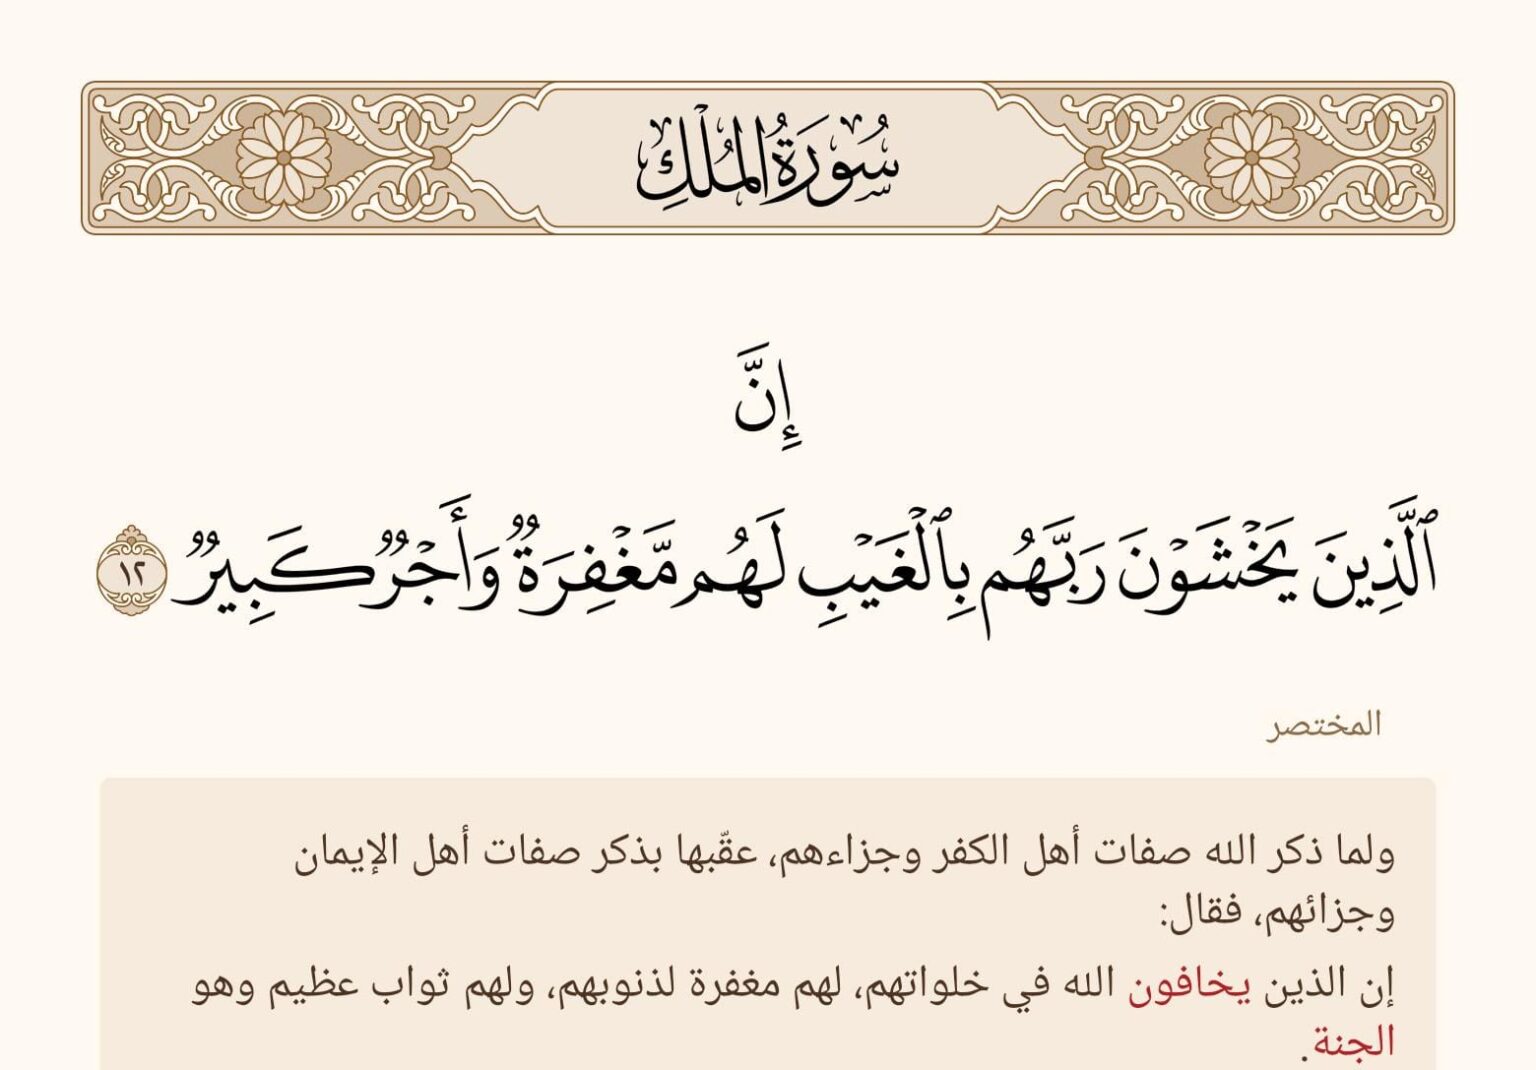 سُورَةُ المُلْكِ
إِنَّ
ٱلَّذِينَ يَخۡشَوۡنَ رَبَّهُم بِٱلۡغَيۡبِ لَهُم مَّغۡفِرَةٞ وَأَجۡرٞ كَبِيرٞ ١٢
المختصر
ولما ذكر الله صفات أهل الكفر وجزاءهم، عقّبها بذكر صفات أهل الإيمان
وجزائهم، فقال:
إن الذين يخافون الله في خلواتهم، لهم مغفرة لذنوبهم، ولهم ثواب عظيم وهو
الجنة.